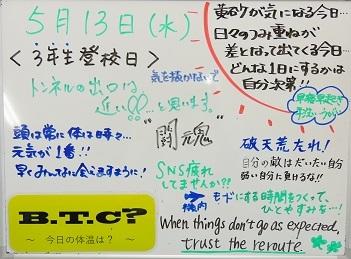 5月13日(水)
<3年生登校日>
トンネルの出口は
近い!!と思います。
気を抜かないで
黄砂が気になる今日…
日々のつみ重ねが
差となって出てくる今日…
どんな1日にするかは
自分次第!!
早寝早起き
頭は常に体は時々…
元気が1番!!
早くみんなに会えますように!
"闘魂"
破天荒たれ!
自分の敵はだいたい自分
弱い自分に負けるな!!
SNS疲れ
してませんか??
機内モードにする時間をつくって、
ひとやすみを…!
B.T.C?
~ 今日の体温は? ~
When things don't go as expected,
trust the reroute.